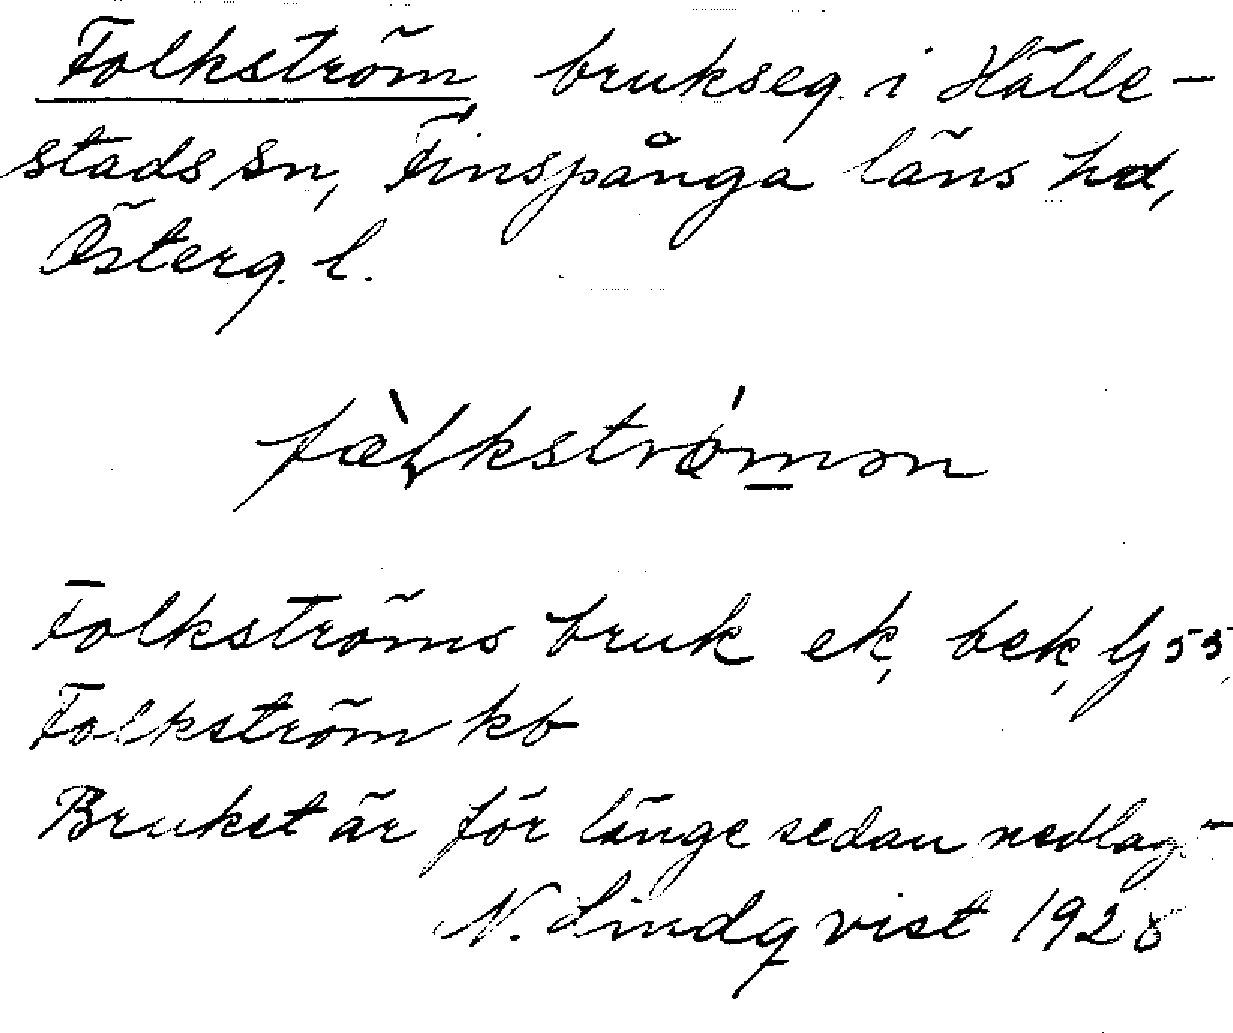 Folkström, brukseg. i Hälle-
stads sn, Finspånga läns hd,
Österg. l.
Folkströms bruk ek, bek, Gj 55,
Folkström kb
Bruket är för länge sedan nedlagt
N. Lindqvist 1928